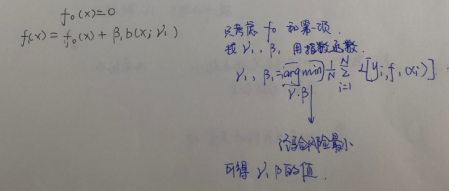 f₀(x)=0
f₁(x)=f₀(x)+β₁b(x;γ₁)
只考虑 f₀ 和第一项.
找 γ₁, β₁ 用指数函数.
γ₁, β₁=argmin 1/N Σ L[yᵢ,f₁(xᵢ)]
γ.β i=1 N
经验风险最小
可得 γ, β 的值.